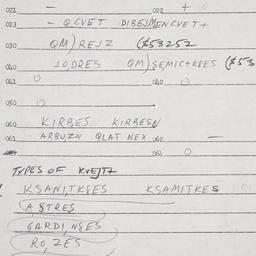 021 — 022 +
023 - QCVET DIBEJMENCVET+
030 QM) REJZ ($53252
040 JODRES QM) SEMICTKPES ($53
041 O 042 O
050 O
060 KIRBES KIRBESN
061 ARBUZN QLAT NEX 062 —
064 O
TYPES OF KVEJT+
KSANITKPES KSAMITKES
ASTRES
GARDI,NSES
RO,ZES